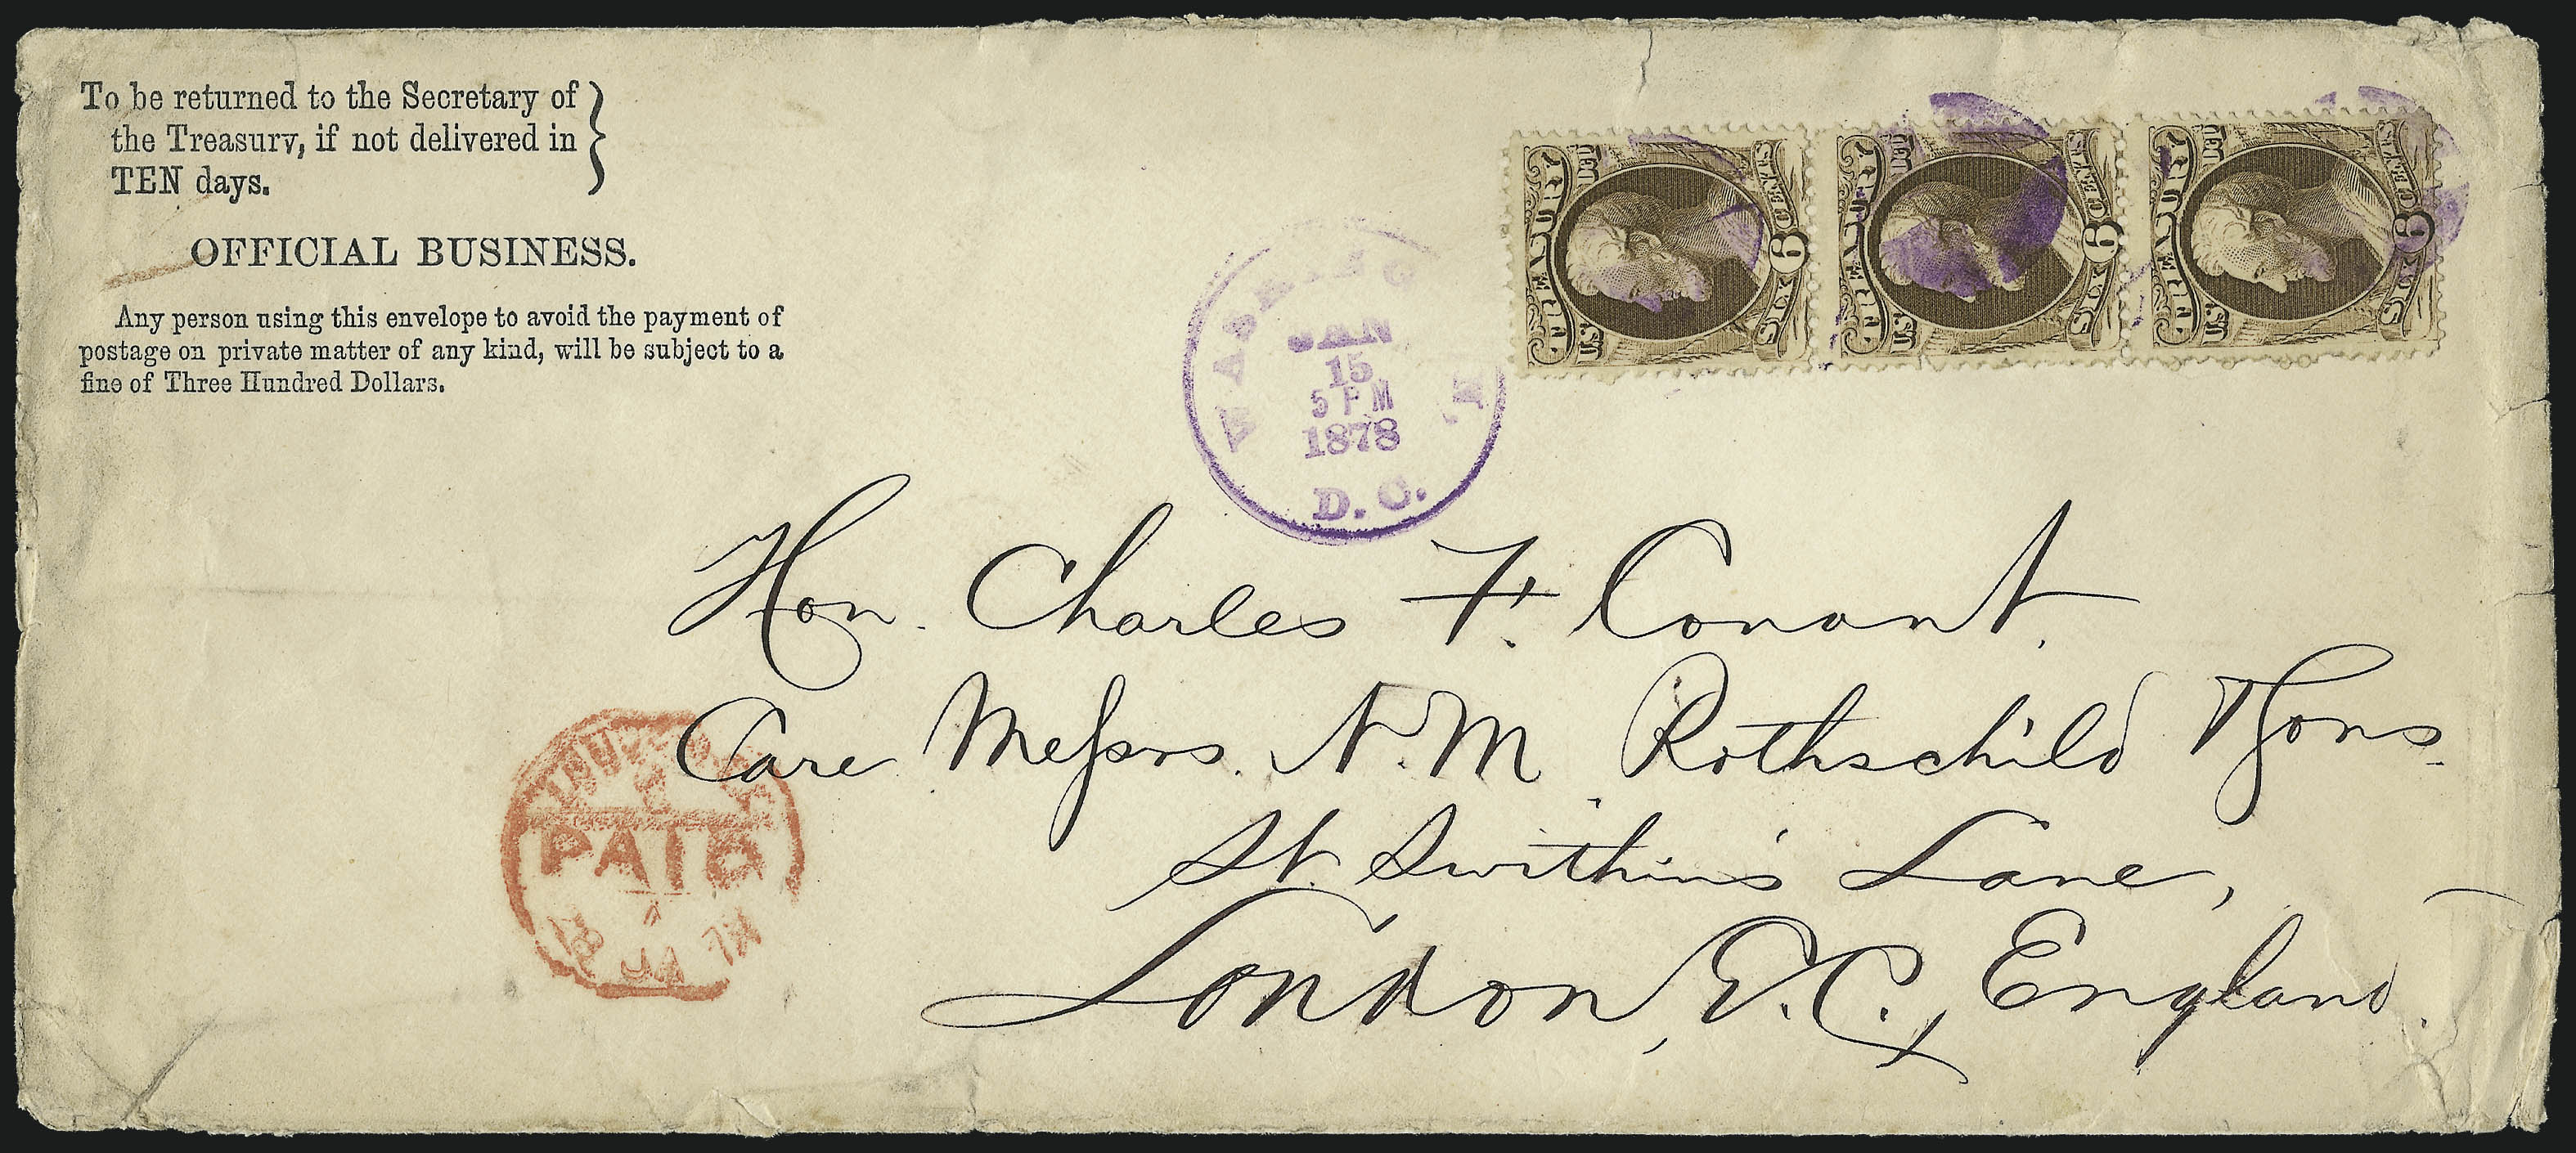 To be returned to the Secretary of
the Treasury, if not delivered in
TEN days.
OFFICIAL BUSINESS.
Any person using this envelope to avoid the payment of
postage on private matter of any kind, will be subject to a
fine of Three Hundred Dollars.
TREASURY
U.S.
SIX CENTS
6
TREASURY
U.S.
SIX CENTS
6
TREASURY
U.S.
SIX CENTS
6
JAN
15
5 PM
1878
D. C.
Hon. Charles F. Conant.
Care Meſsrs. N. M. Rothschild & Sons.
St. Swithin's Lane,
London, E.C., England.
PAID
JA